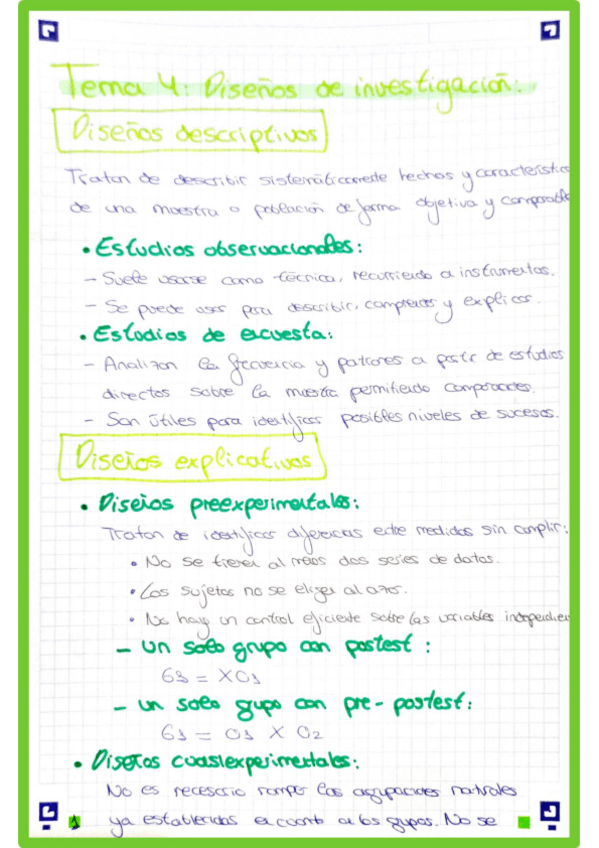 Tema 4: Diseños de investigación:
Diseños descriptivos
Tratan de describir sistemáticamente hechos y característic
de una muestra o población de forma objetiva y comprobable
• Estudios observacionales:
- Suele usarse como técnica, recurriendo a instrumentos.
- Se puede usar para describir, comprender y explicar.
• Estudios de encuesta:
- Analizan la frecuencia y patrones a partir de estudios
directos sobre la muestra permitiendo comparaciones.
- Son útiles para identificar posibles niveles de sucesos.
Diseños explicativos
• Diseños preexperimentales:
Tratan de identificar diferencias entre medidas sin cumplir:
• No se tienen al menos dos series de datos.
• Los sujetos no se eligen al azar.
• No hay un control eficiente sobre las variables independien
- Un solo grupo con postest:
G1 = X O1
- Un solo grupo con pre-postest:
G1 = O1 X O2
• Diseños cuasiexperimentales:
No es necesario romper las agrupaciones naturales
1 ya establecidas en cuanto a los grupos. No se